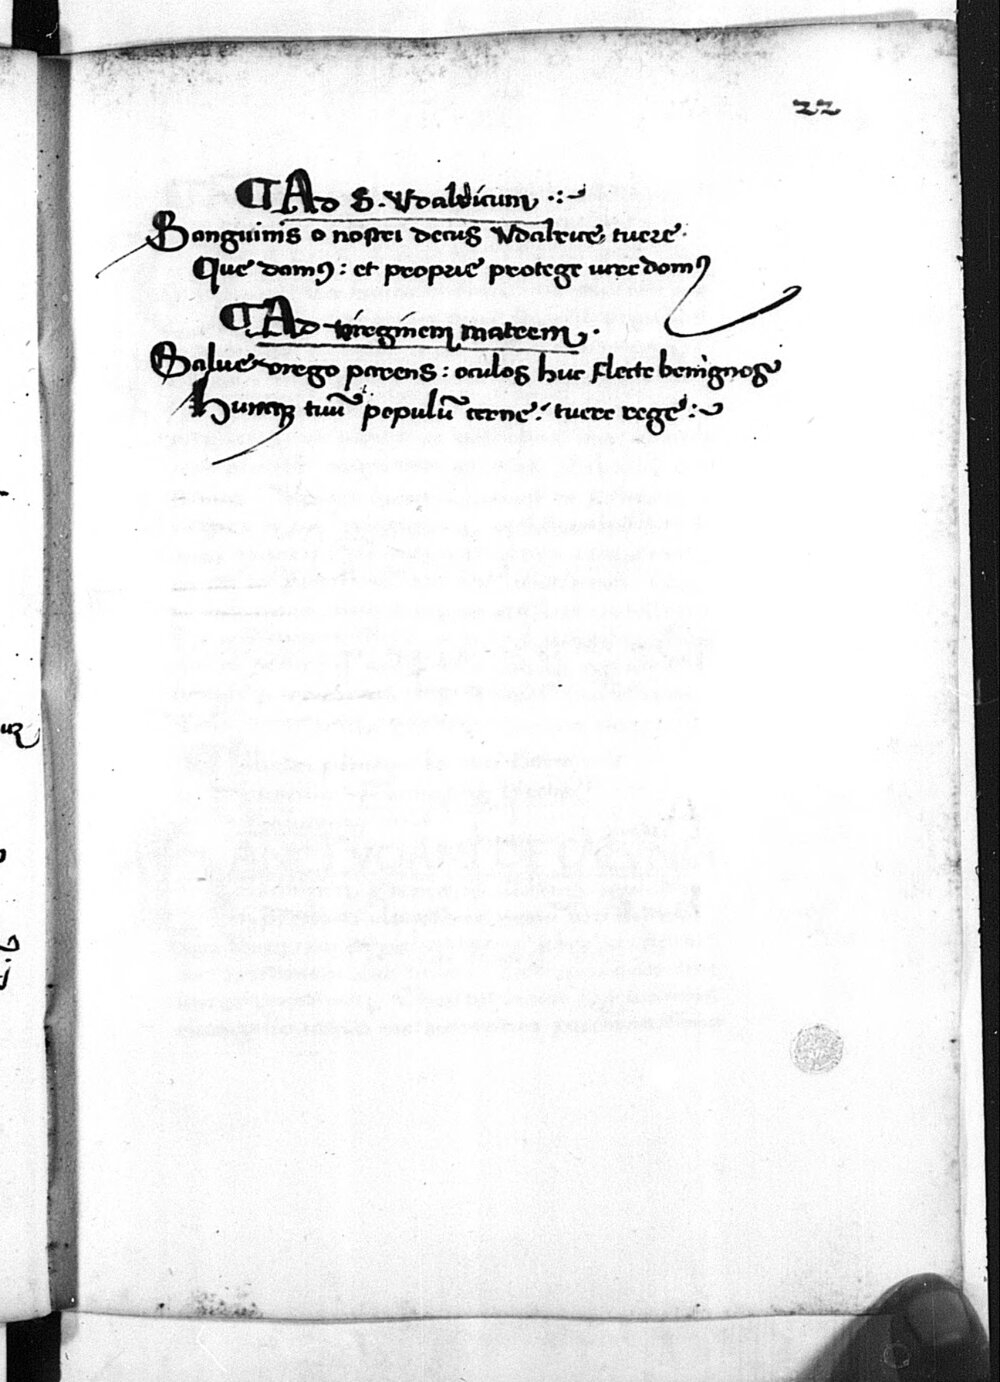 22
¶ Ad S. Vdalricum .:~
Sanguinis o nostri decus Vdalrice, tuere.
Que damꝰ: et proprie protege iure domꝰ
¶ Ad virginem matrem.
Salue virgo parens: oculos huc flecte benignos
Huncqꝫ tuū populū cerne: tuere rege:~